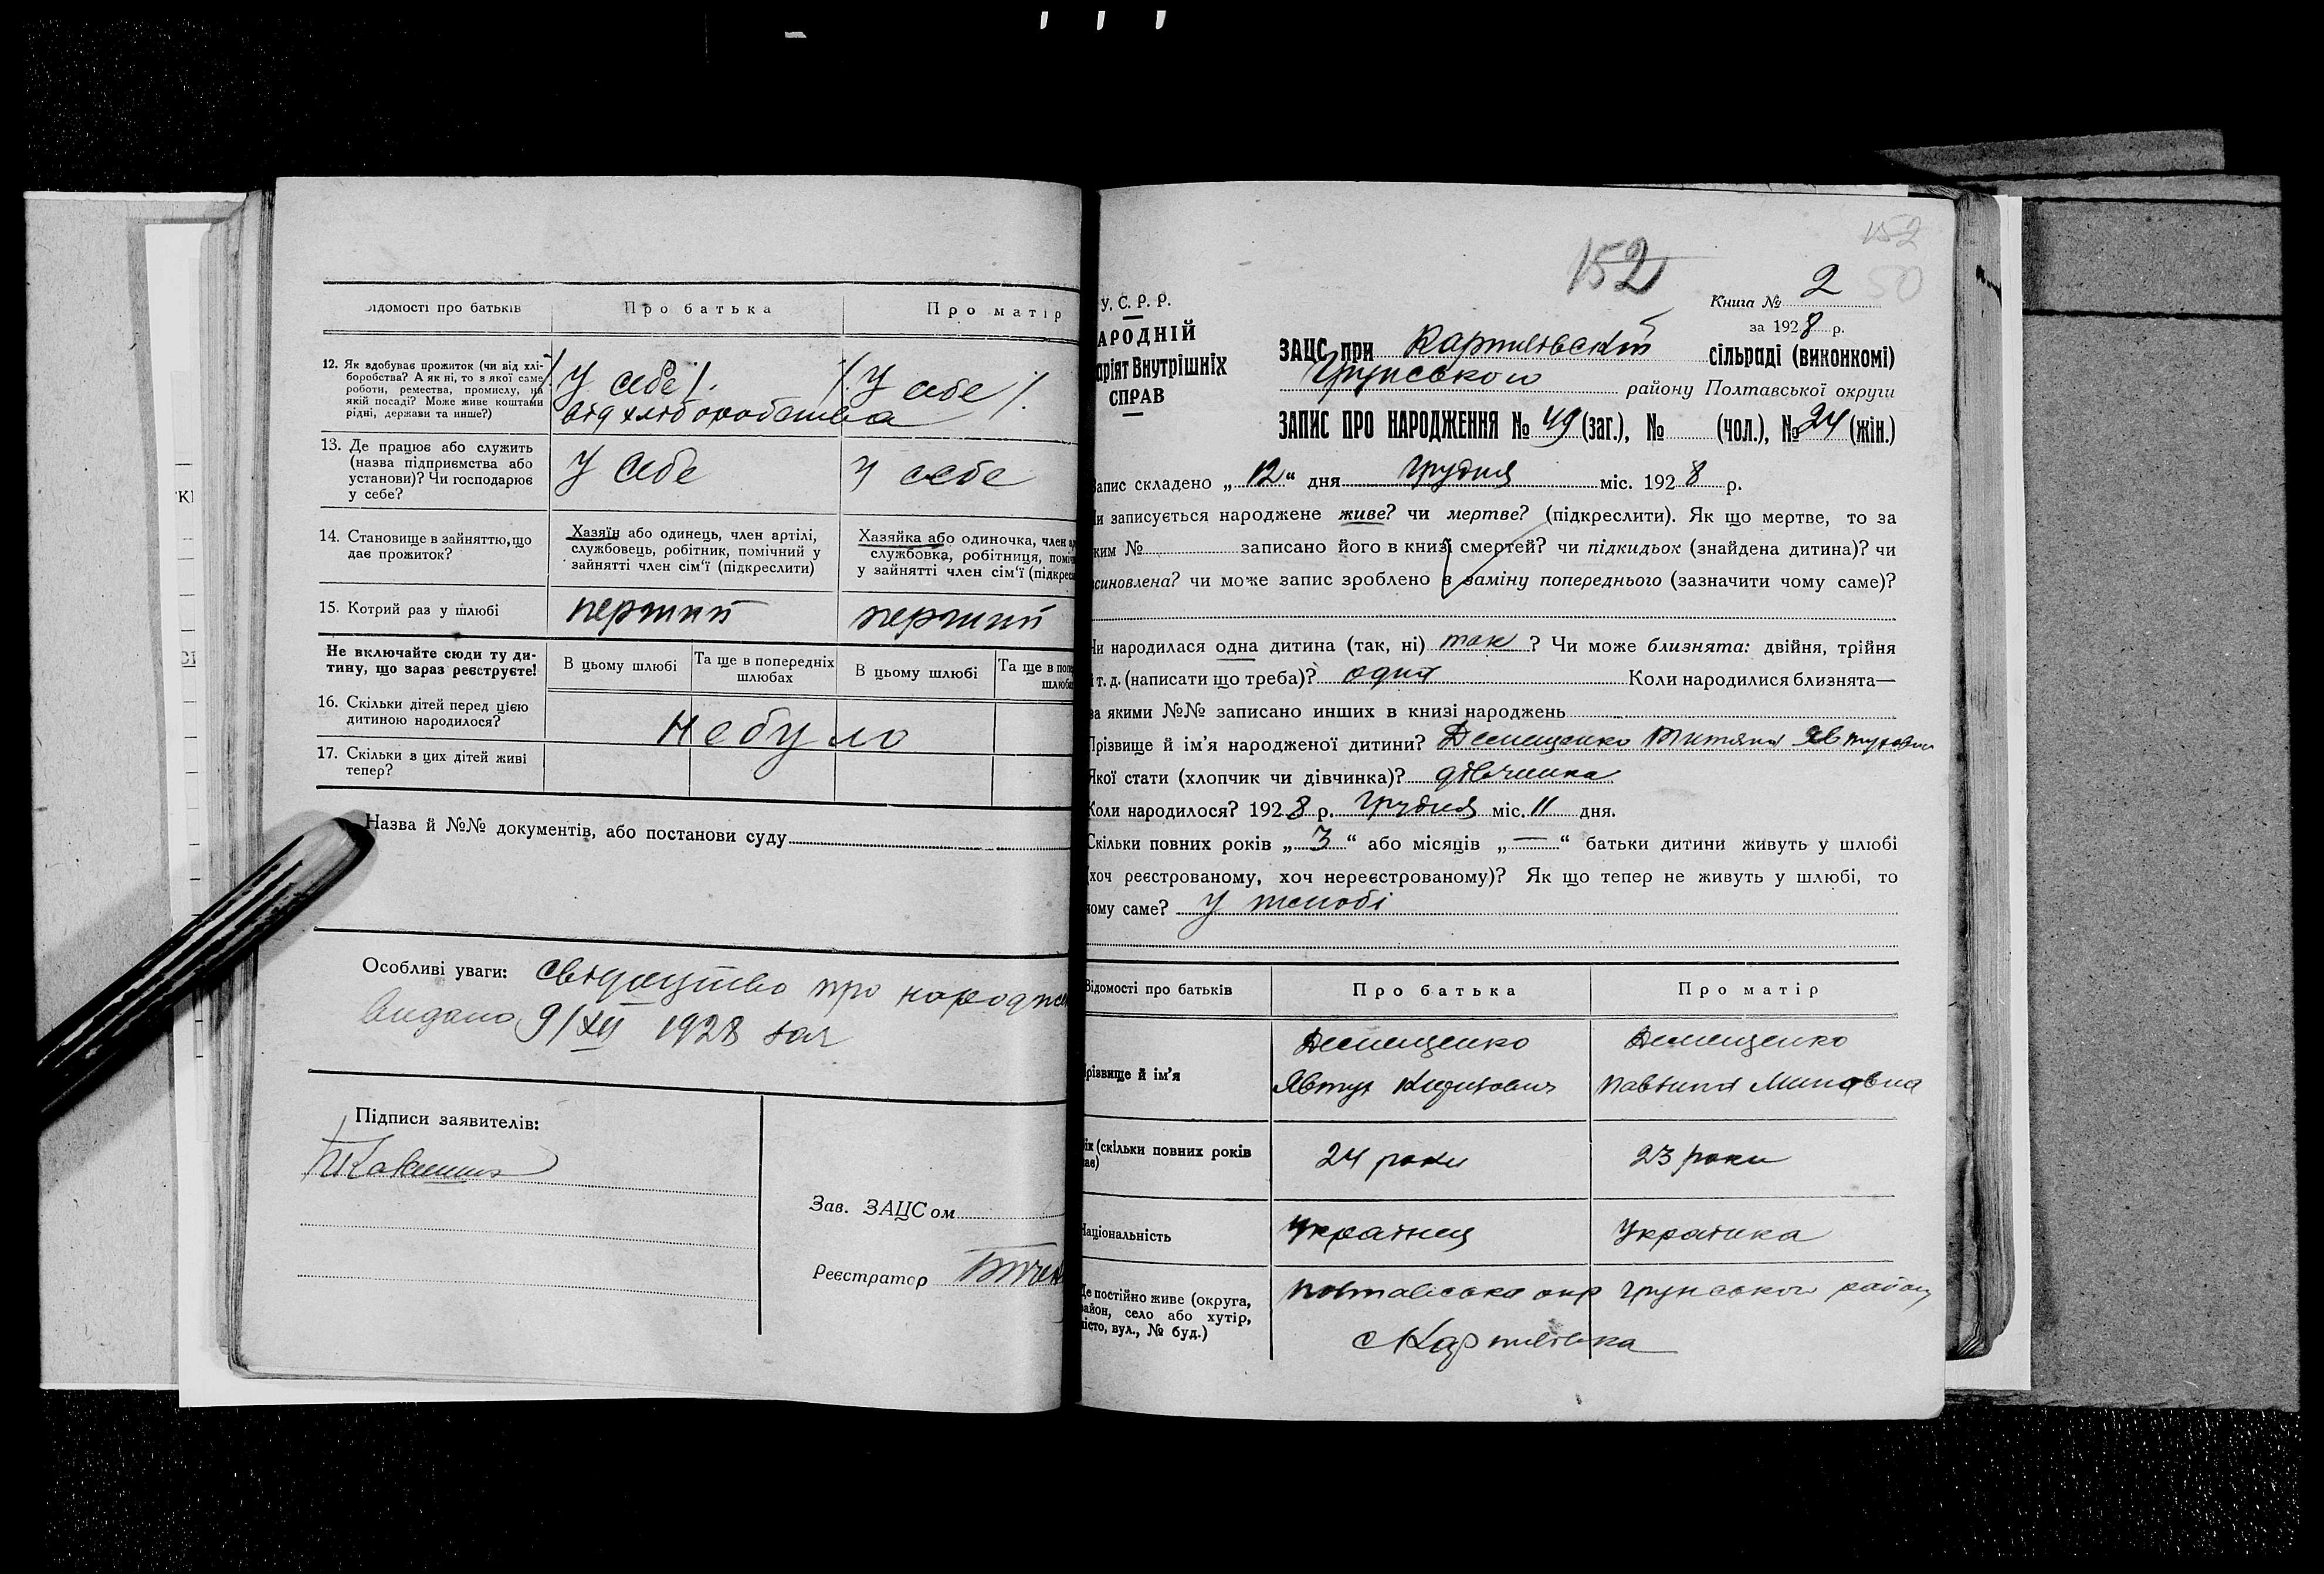 Відомості про батьків
Про батька
Про матір
12. Як здобуває прожиток (чи від хлі-
боробства? А як ні, то в якої саме
роботи, ремества, промислу, на
якій посаді? Може живе коштами
рідні, держави та инше?)
У себе
від хліборобства
У себе
13. Де працює або служить
(назва підприємства або
установи)? Чи господарює
у себе?
У себе
У себе
14. Становище в зайняттю, що
дає прожиток?
Хазяїн або одинець, член артілі,
службовець, робітник, помічний у
зайнятті член сім'ї (підкреслити)
Хазяйка або одиночка, член
службовка, робітниця,
у зайнятті член сім'ї
15. Котрий раз у шлюбі
перший
перший
Не включайте сюди ту ди-
тину, що зараз реєструєте!
В цьому шлюбі
Та ще в попередніх
шлюбах
В цьому шлюбі
Та ще в
16. Скільки дітей перед цією
дитиною народилося?
Небуло
17. Скільки з цих дітей живі
тепер?
Назва й №№ документів, або постанови суду
Особливі уваги: свідоцтво про
видано 9/XII 1928
Підписи заявителів:
Зав. ЗАЦСом
Реєстратор
152
152
50
У. С. Р. Р.
АРОДНІЙ
ріят Внутрішніх
СПРАВ
Книга № 2
за 1928 р.
ЗАЦС при Карпилівській сільраді (виконкомі)
Грунського району Полтавської округи
ЗАПИС ПРО НАРОДЖЕННЯ № 49 (заг.), № (чол.), № 24 (жін.)
Запис складено „12“ дня грудня міс. 1928 р.
Чи записується народжене живе? чи мертве? (підкреслити). Як що мертве, то за
яким № записано його в книзі смертей? чи підкидьок (знайдена дитина)? чи
усиновлена? чи може запис зроблено в заміну попереднього (зазначити чому саме)?
Чи народилася одна дитина (так, ні) так? Чи може близнята: двійня, трійня
і т. д. (написати що треба)? одна Коли народилися близнята—
за якими №№ записано инших в книзі народжень
Прізвище й ім'я народженої дитини? Демещенко Титяна
Якої стати (хлопчик чи дівчинка)? дівчинка
Коли народилося? 1928 р. грудня міс. 11 дня.
Скільки повних років „3“ або місяців „—“ батьки дитини живуть у шлюбі
(хоч реєстрованому, хоч нереєстрованому)? Як що тепер не живуть у шлюбі, то
чому саме? У шлюбі
Відомості про батьків
Про батька
Про матір
Прізвище й ім'я
Демещенко
Явтух
Демещенко
Мины
Вік (скільки повних років
має)
24 роки
23 роки
Національність
Українец
Українка
Де постійно живе (округа,
район, село або хутір,
місто, вул., № буд.)
Полтавська окр Грунського району
с Карпилівка